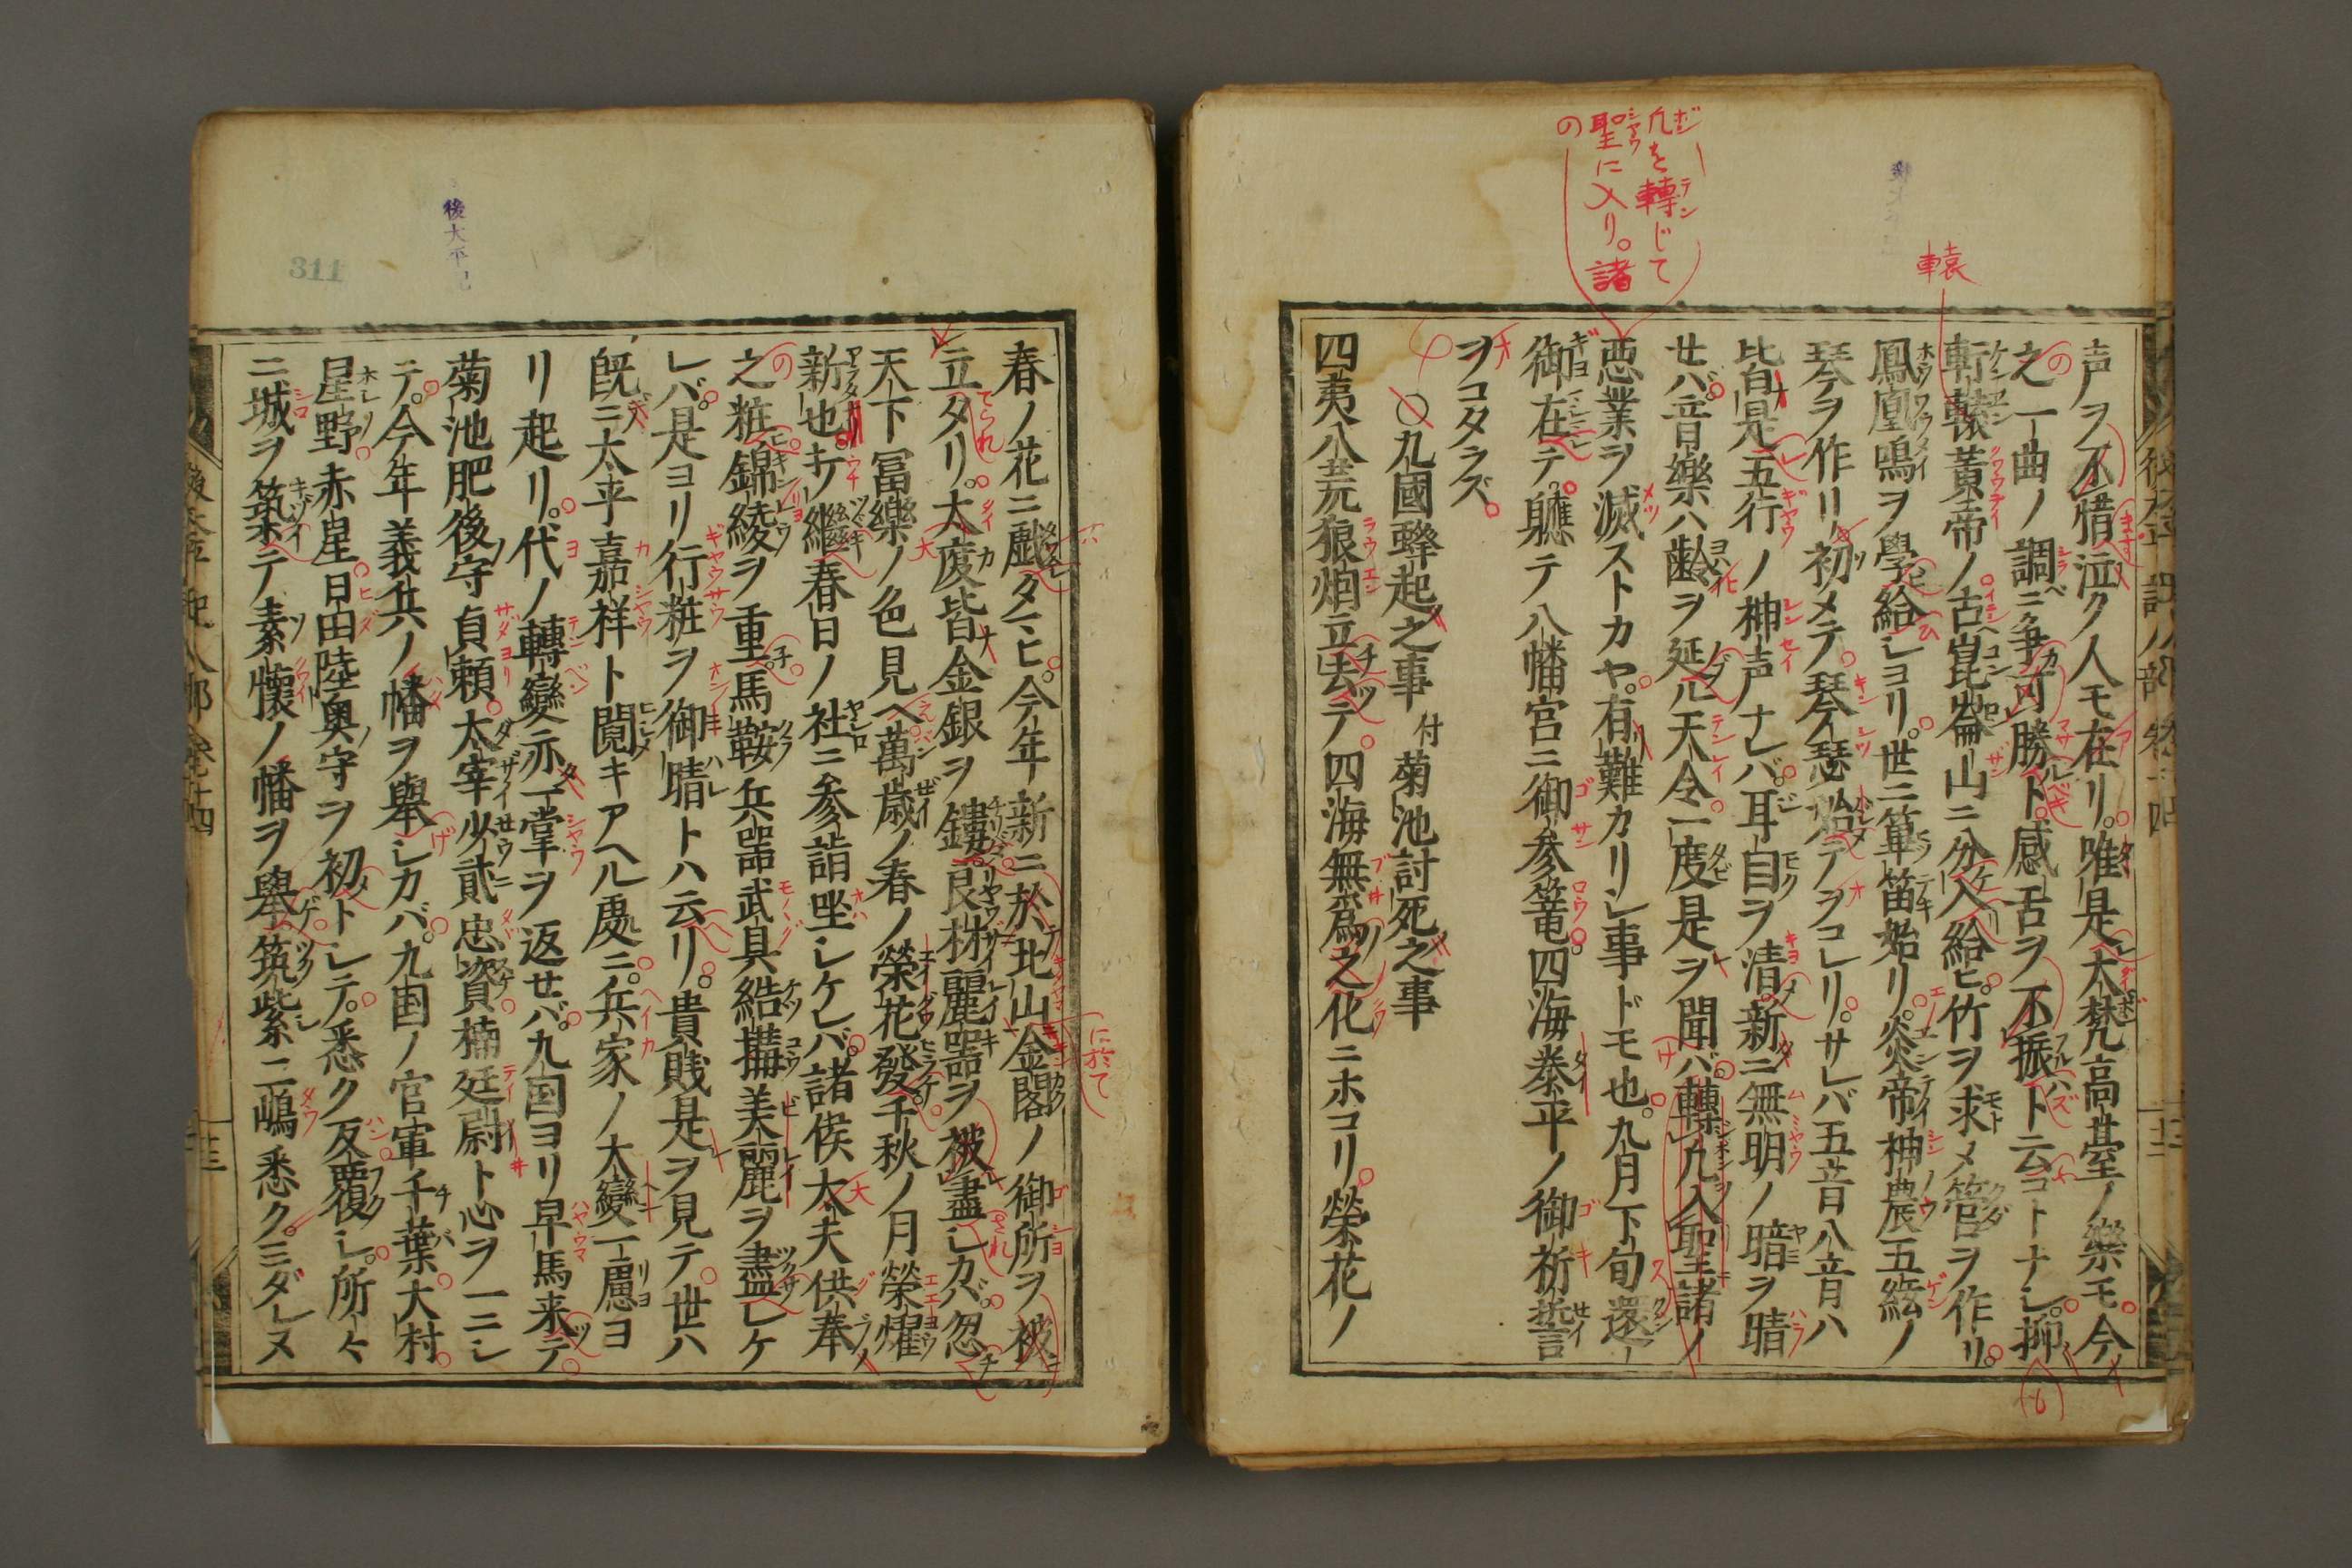 声ヲ不惜泣ク人モ在リ。唯是大梵高台ノ樂モ今
之一曲ノ調ニ争可勝ト感舌ヲ不振ト云コトナシ。抑
軒轅黃帝ノ古崑崙山ニ分入給ヒ。竹ヲ求メ管ヲ作リ。
鳳凰鳴ヲ學給シヨリ。世ニ篳笛始リ。炎帝神農五絃ノ
琴ヲ作リ。初メテ琴瑟始テヲコレリ。サレバ五音八音ハ
皆是五行ノ神声ナレバ。耳目ヲ清新ニ無明ノ暗ヲ晴
セバ音樂ハ齢ヲ延ル天令。一度是ヲ聞バ。轉凡入聖諸ノ
惡業ヲ滅ストカヤ。有難カリシ事ドモ也。九月下旬還
御在テ。軈テ八幡宮ニ御參篭。四海泰平ノ御祈誓
ヲコタラズ
○九國蜂起之事 付 菊池討死之事
四夷八荒狼烟立去テ。四海無爲之化ニホコリ榮花ノ
凡を轉じて
聖に入り。諸
の
轅
春ノ花ニ戯タマヒ。今年新ニ於北山金閣ノ御所ヲ被
立タリ。大廈皆金銀ヲ鏤。良材麗器ヲ被盡シカバ。忽
天下冨樂ノ色見ヘ萬歳ノ春ノ榮花發千秋ノ月榮燿
新也キ。継春日ノ社ニ參詣坐シケレバ。諸侯大夫供奉
之粧錦綾ヲ重。馬鞍兵器武具結搆美麗ヲ盡シケ
レバ。是ヨリ行粧ヲ御晴トハ云リ。貴賎是ヲ見テ。世ハ
既ニ太平嘉祥ト聞キアヘル處ニ。兵家ノ大變一慮ヨ
リ起リ。代ノ轉變亦一掌ヲ返セバ。九国ヨリ早馬来テ
菊池肥後守貞頼。太宰少貳忠資。楠廷尉ト心ヲ一ニシ
テ。今年義兵ノ幡ヲ舉シカバ。九国ノ官軍千葉大村
星野赤星日田陸奥守ヲ初トシテ。悉ク反覆シ。所々
ニ城ヲ築テ素懷ノ幡ヲ舉。筑紫二嶋悉ク。ミダレヌ
後太平記
311